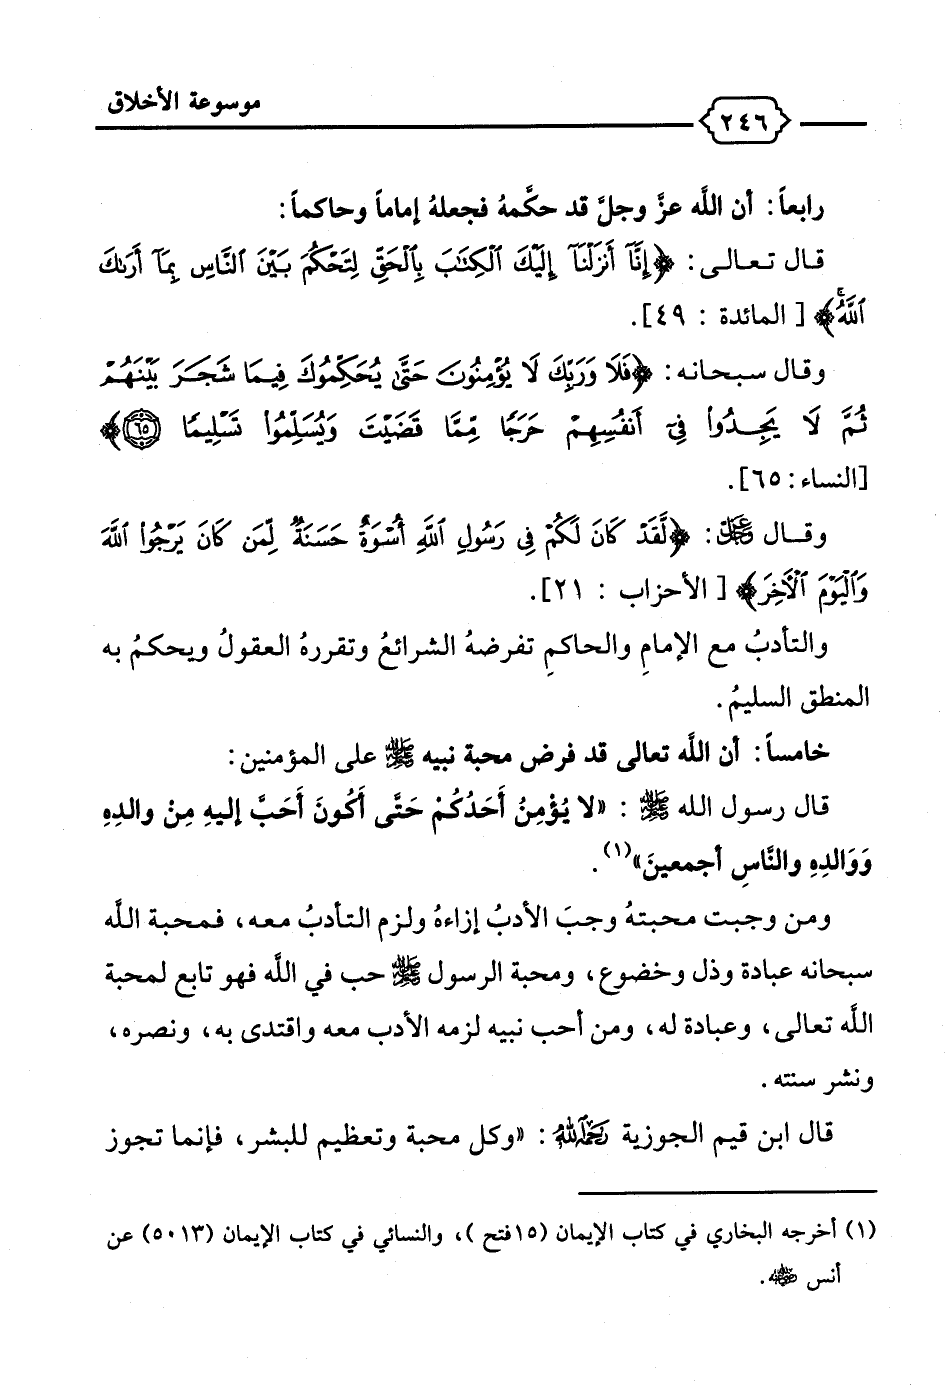 موسوعة الأخلاق
٢٤٦
رابعاً: أن اللَّه عزَّ وجلَّ قد حكَّمهُ فجعلهُ إماماً وحاكماً:
قال تعالى: ﴿إِنَّآ أَنزَلْنَآ إِلَيْكَ ٱلْكِتَٰبَ بِٱلْحَقِّ لِتَحْكُمَ بَيْنَ ٱلنَّاسِ بِمَآ أَرَىٰكَ
ٱللَّهُۚ﴾ [المائدة : ٤٩].
وقال سبحانه: ﴿فَلَا وَرَبِّكَ لَا يُؤْمِنُونَ حَتَّىٰ يُحَكِّمُوكَ فِيمَا شَجَرَ بَيْنَهُمْ
ثُمَّ لَا يَجِدُوا۟ فِىٓ أَنفُسِهِمْ حَرَجًا مِّمَّا قَضَيْتَ وَيُسَلِّمُوا۟ تَسْلِيمًا ٦٥﴾
[النساء: ٦٥].
وقال ﷻ: ﴿لَّقَدْ كَانَ لَكُمْ فِى رَسُولِ ٱللَّهِ أُسْوَةٌ حَسَنَةٌ لِّمَن كَانَ يَرْجُوا۟ ٱللَّهَ
وَٱلْيَوْمَ ٱلْأَخِرَ﴾ [الأحزاب : ٢١].
والتأدبُ مع الإمامِ والحاكمِ تفرضهُ الشرائعُ وتقررهُ العقولُ ويحكمُ به
المنطق السليمُ.
خامساً: أن اللَّه تعالى قد فرض محبة نبيه ﷺ على المؤمنين:
قال رسول الله ﷺ : «لا يُؤْمِنُ أَحَدُكُمْ حَتَّى أَكُونَ أَحَبَّ إليهِ مِنْ والدِهِ
وَوَالدِهِ والنَّاسِ أجمعينَ»(١).
ومن وجبت محبتهُ وجبَ الأدبُ إزاءهُ ولزم التأدبُ معه، فمحبة اللَّه
سبحانه عبادة وذل وخضوع، ومحبة الرسول ﷺ حب في اللَّه فهو تابع لمحبة
اللَّه تعالى، وعبادة له، ومن أحب نبيه لزمه الأدب معه واقتدى به، ونصره،
ونشر سنته.
قال ابن قيم الجوزية رَحِمَهُ ٱللَّهُ : «وكل محبة وتعظيم للبشر، فإنما تجوز
(١) أخرجه البخاري في كتاب الإيمان (١٥فتح )، والنسائي في كتاب الإيمان (٥٠١٣) عن
أنس رضي الله عنه.